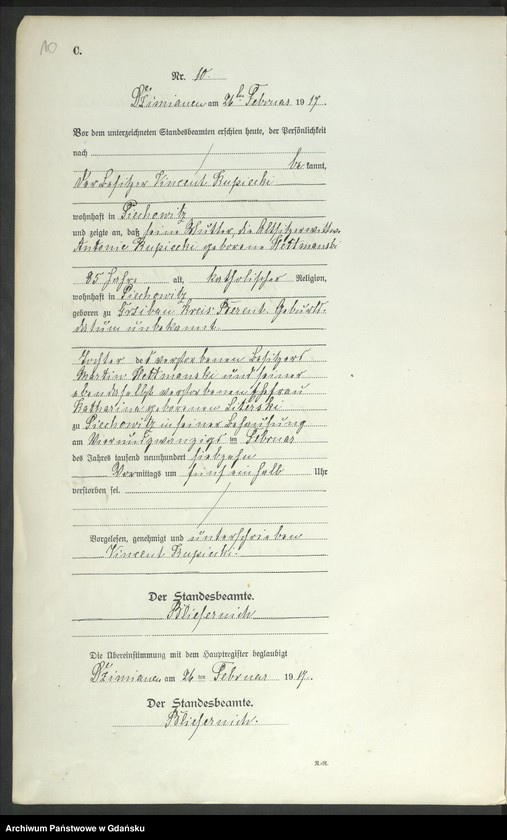 10
C.
Nr. 10.
Dzimianen am 26ten Februar 1917.
Vor dem unterzeichneten Standesbeamten erschien heute, der Persönlichkeit
nach
bekannt,
der Besitzer Vincent Kupiecki
wohnhaft in Piechowitz
und zeigte an, daß seine Mutter, die Altsitzerwittwe
Antonie Kupiecki geborene Wettmanski
85 Jahre alt, katholischer Religion,
wohnhaft in Piechowitz
geboren zu Kreis Berent. Geburts-
datum unbekannt
Tochter des verstorbenen Besitzers
Martin Wettmanski und seiner
ebendaselbst verstorbenen Ehefrau
Katharina geborenen Literski
zu Piechowitz in seiner Behausung
am Vierundzwanzigst en Februar
des Jahres tausend neunhundert siebzehn
Vormittags um fünfeinhalb Uhr
verstorben sei.
Vorgelesen, genehmigt und unterschrieben
Vincent Kupiecki.
Der Standesbeamte.
Bliefernich
Die Übereinstimmung mit dem Hauptregister beglaubigt
Dzimianen am 26 ten Februar 1917.
Der Standesbeamte.
Bliefernich.
R.-R.
Archiwum Państwowe w Gdańsku